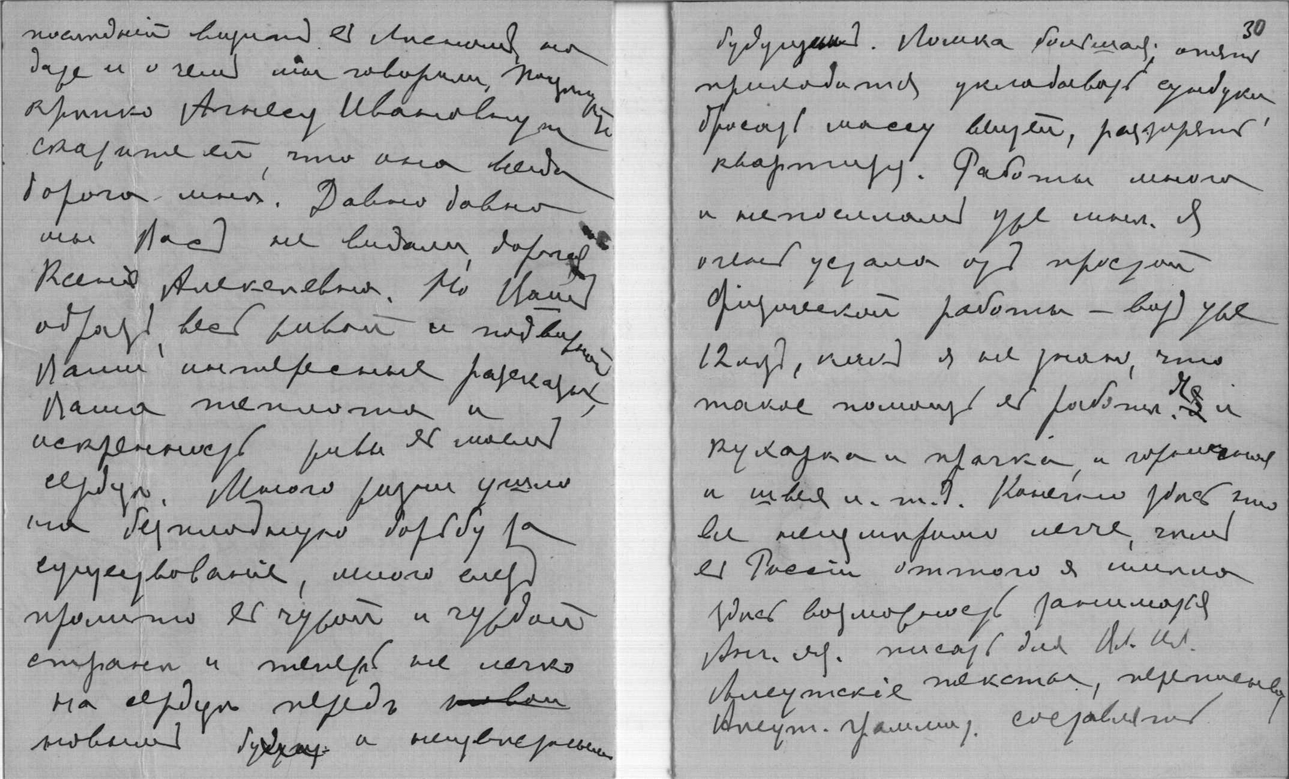 последній визитъ въ Лисный, на
даже и о чемъ мы говорили, Поцѣлуйте
крѣпко Агнесу Ивановну и
скажите ей, что она всегда
дорога мнѣ. Давно давно
мы Васъ не видали, дорогая
Ксенія Алексеевна. Но Вашъ
образъ, весь живой и подвижной
Ваши интересные разсказы,
Ваша теплота и
искренность живы въ моемъ
сердцѣ. Много жизни ушло
на безплодную борьбу за
существованіе, много слезъ
пролито въ чужой и чуждой
странѣ и теперь не легко
на сердцѣ передъ
новымъ и неувѣреннымъ
30
будущимъ. Ломка большая; опять
приходится укладывать сундуки,
бросать массу вещей, разорять
квартиру. Работы много
и непосильной уже мнѣ. Я
очень устала отъ простой
физической работы – вотъ уже
12 лѣтъ, какъ я не знаю, что
такое помощь въ работѣ. Я и
кухарка и прачка, и горничная
и швея и.т.д. Конечно здѣсь это
все неизмѣримо легче, чѣмъ
въ Россіи оттого я имѣла
здѣсь возможность заниматься
Анг. яз. писать для Вл. Ил.
Алеутскіе тексты, переписывать
Алеут. граммат. составлять